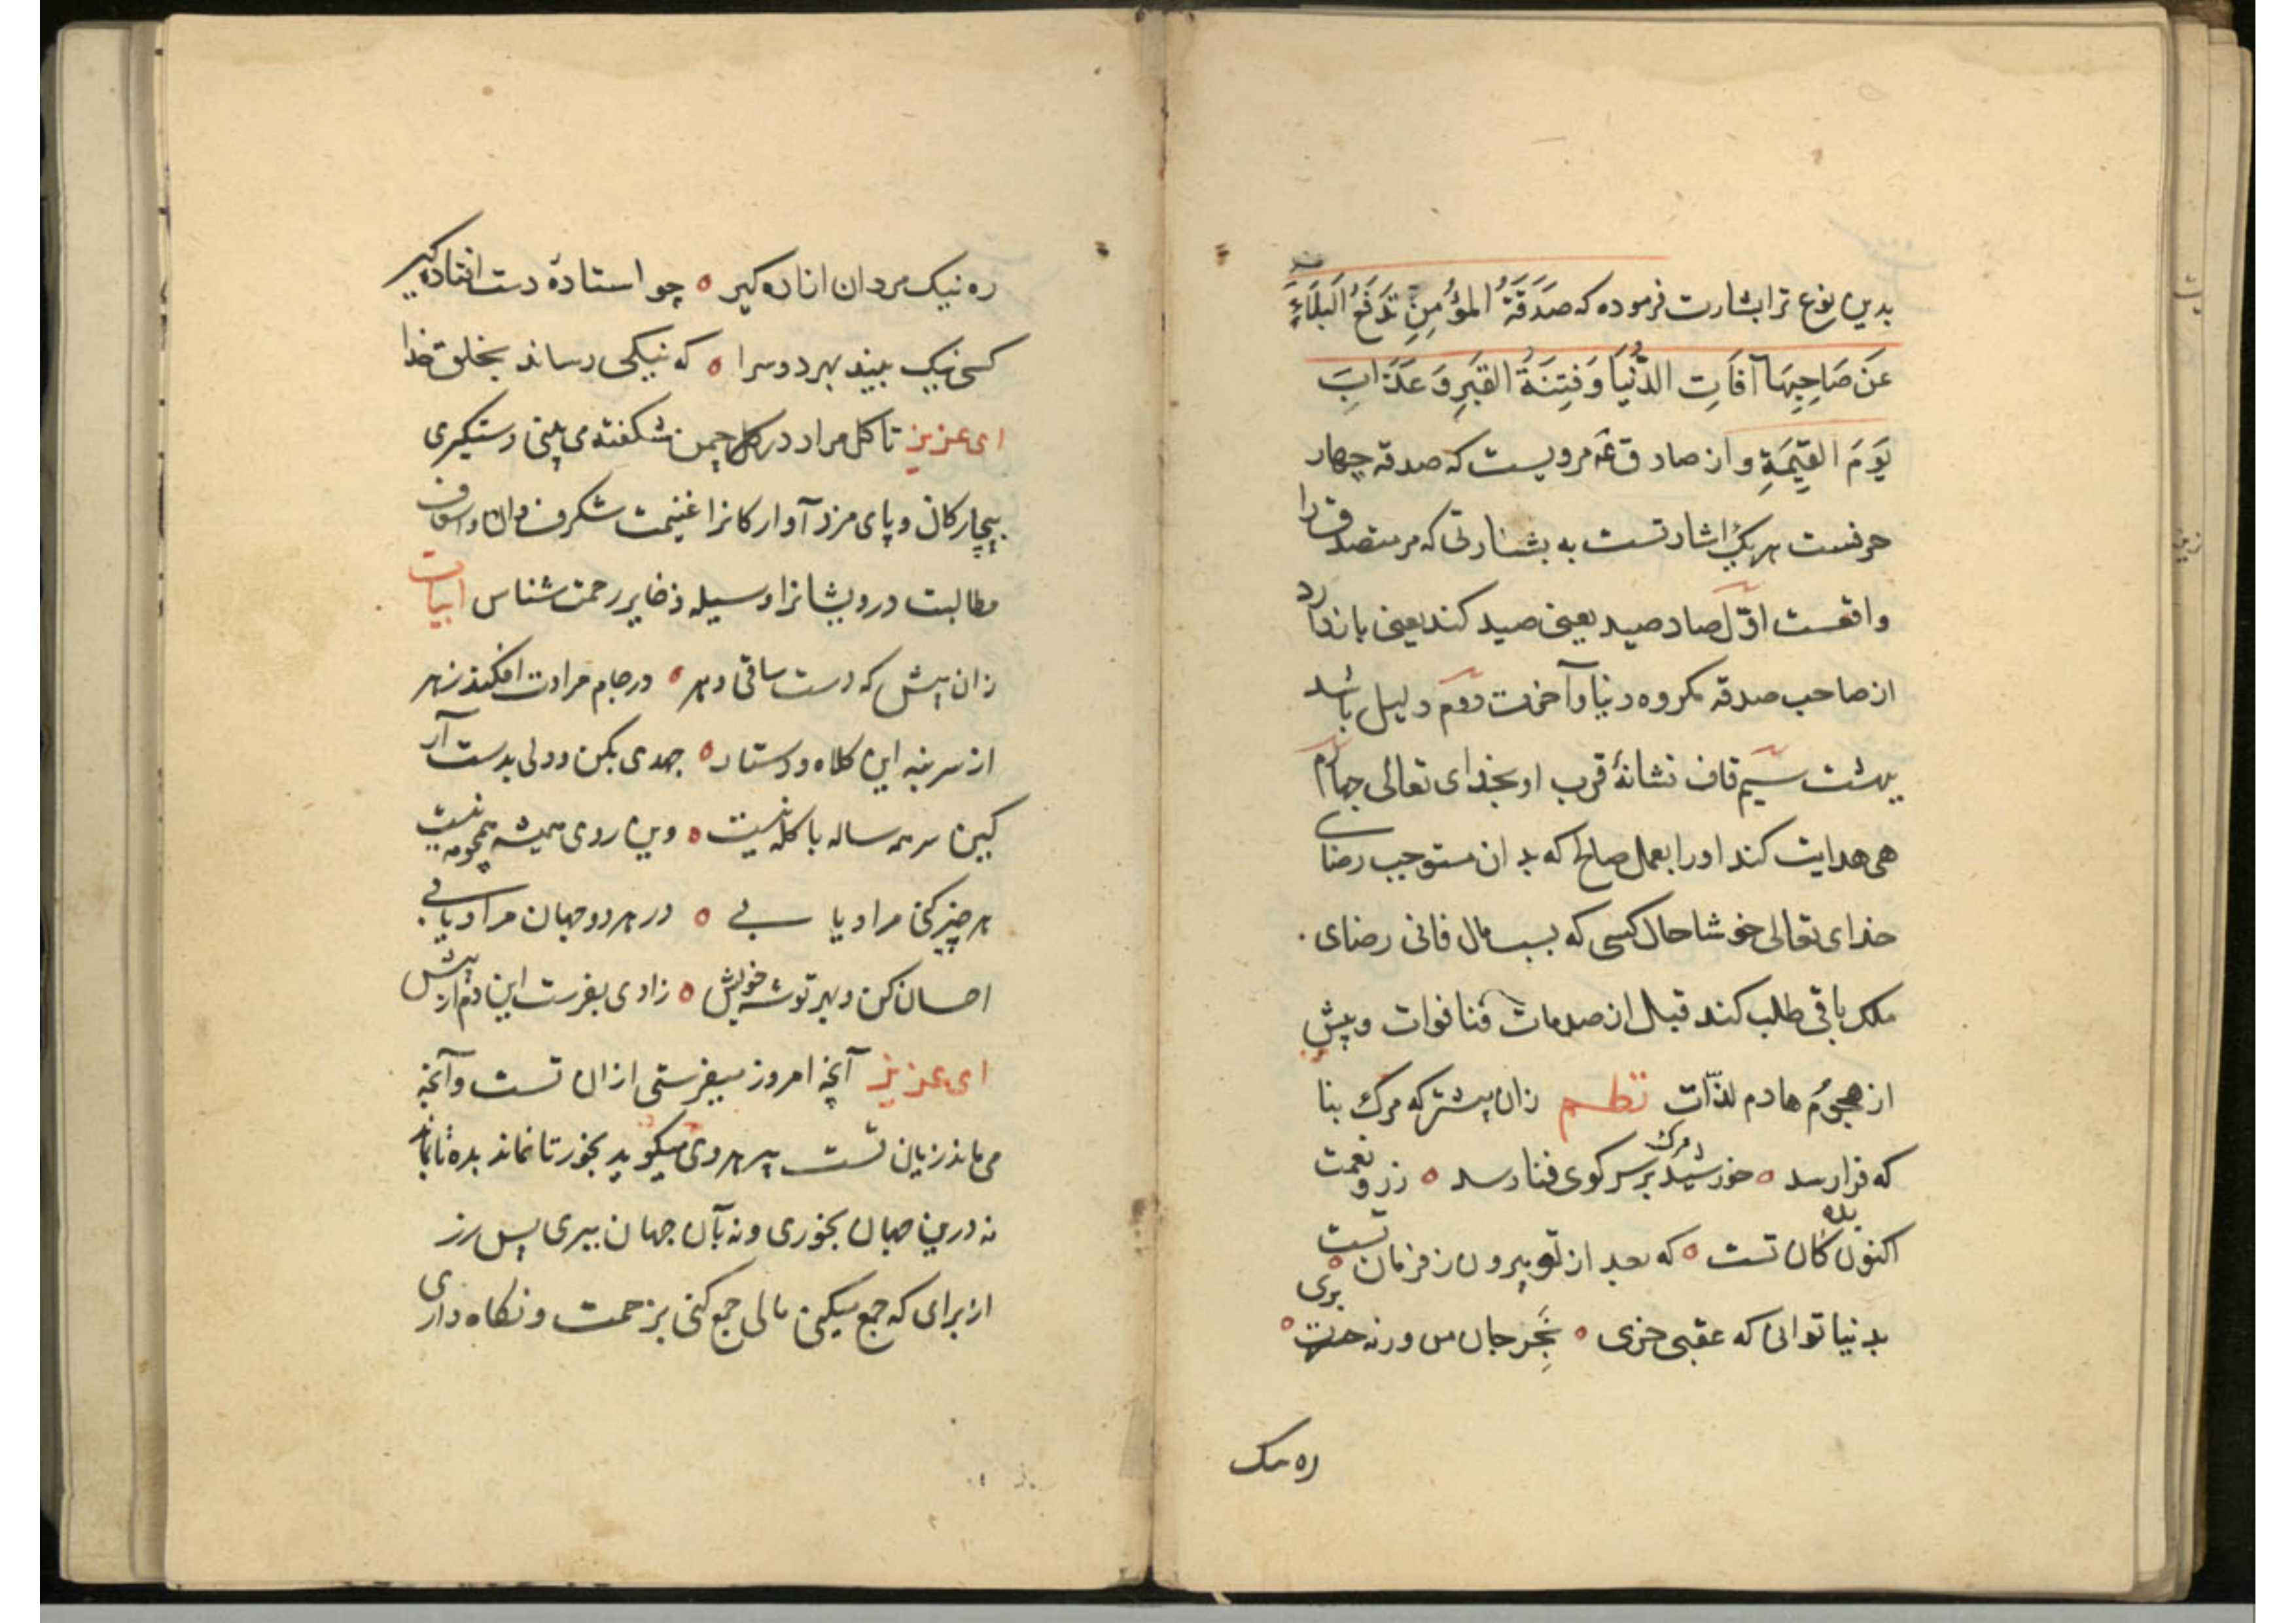 بدین نوع ترا بشارت فرموده که صَدَقَةُ المُؤمِنِ تَدفَعُ البَلَاءَ
عَن صَاحِبِهَا آفَاتِ الدُّنیَا وَ فِتنَةُ القَبرِ وَ عَذَابَ
یَومَ القِیٰمَةِ و از صادق عَم مرویست که صدقه چهار
حرفست هریک اشارتست به بشارتی که مر متصدق را
واقعست اوّل صاد صید یعنی صید کند یعنی باز دارد
از صاحب صدقه مکروه دنیا و آخرت دوم دلیل باشد
بهشت سیم قاف نشانهٔ قرب او بخدای تعالی چهارم
هی هدایت کند او را بعمل صالح که بدان مستوجب رضای
خدای تعالی خوشا حال کسی که بسبب مال فانی رضای
ملک باقی طلب کند قبل از صدمات فنا فوات و پیش
از هجوُم هادم لذّات نظم زان پیشتر که مرگ بنا
که فرا رسد خورشید مرگ بر سر کوی فنا رسد زر و نعمت
اکنون بده کان تست که بعد از تو بیرون ز فرمان تست
بدنیا توانی که عقبی خری بخَر جان من ورنه حسرت بری
ره نیک
ره نیک مردان ازاده گیر چو استادهٔ دست افتاده گیر
کسی نیک بیند بهر دو سرا که نیکی رساند بخلق خدا
ای عزیز تا گل مراد در چمن شکفته می بینی دستگیری
بیچارگان و پای مزد آوارگانرا غنیمت شگرف دان و اسعاف
مطالبت درویشانرا وسیله ذخایر رحمت شناس ابیات
زان پیش که دست ساقی دهر در جام مرادت افکند زهر
از سر بنه این کلاه و دستار جهدی بکن و دلی بدست آر
کین سر همه ساله با کله نیست وین روی همیشه همچو مه نیست
هر چیز کنی مراد یابی در هر دو جهان مراد یابی
احسان کن و بهر توشه خویش زادی بفرست این دم از پیش
ای عزیز آنچه امروز میفرستی از ان تست و آنچه
می ماند زیان تست پیر هروی میگوید بخور تا نماند بده تا بماند
نه درین جهان بخوری و نه بآن جهان ببری پس زر
از برای که جمع میکنی مالی جمع کنی بزحمت و نگاه داری